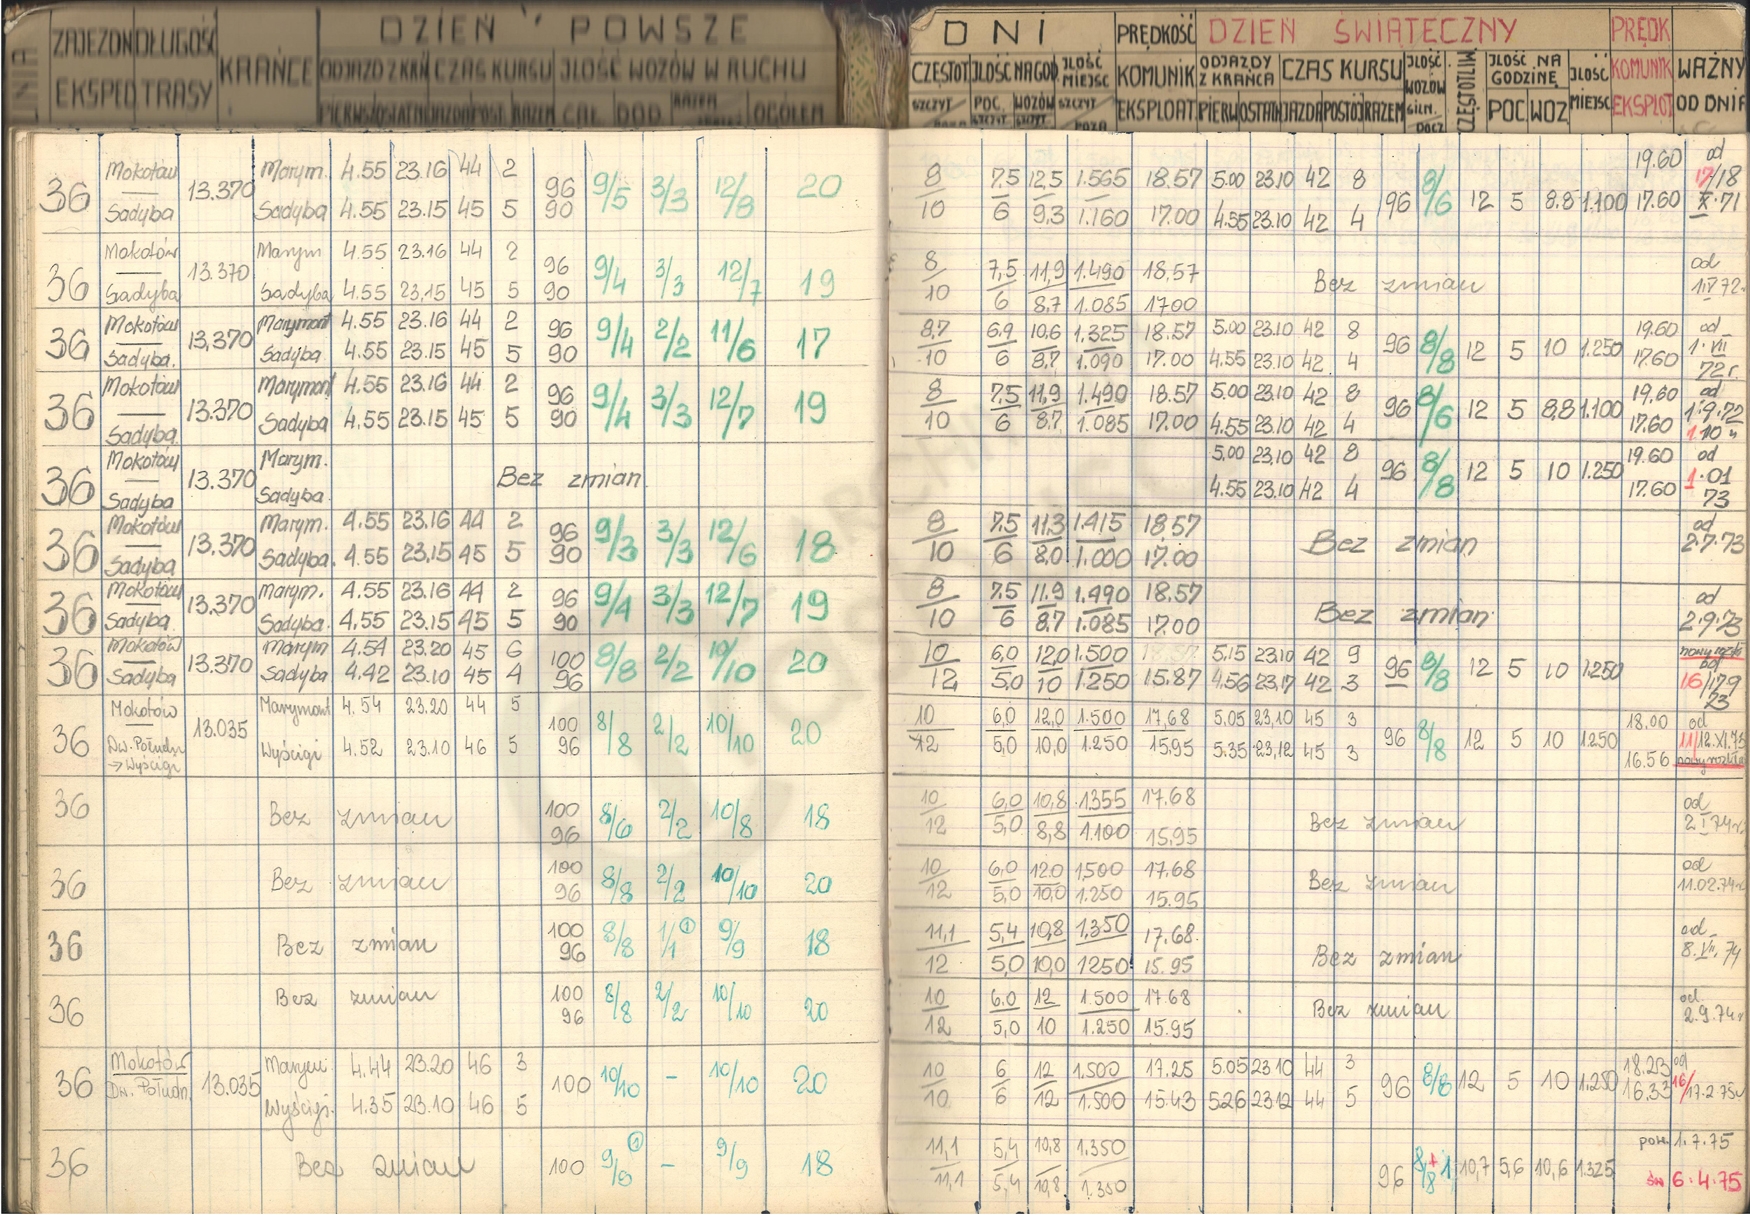 LINIA ZAJEZDN EKSPED DŁUGOŚĆ TRASY KRAŃCE DZIEŃ POWSZE DNI PRĘDKOŚĆ DZIEŃ ŚWIĄTECZNY PRĘDK WAŻNY OD DNIA
ODJAZD Z KRAŃ CZAS KURSU ILOŚĆ WOZÓW W RUCHU CZĘSTOT ILOŚĆ NA GOD. ILOŚĆ MIEJSC KOMUNIK EKSPLOAT. ODJAZDY Z KRAŃCA CZAS KURSU ILOŚĆ WOZÓW CZĘSTOTLIW. ILOŚĆ NA GODZINĘ ILOŚĆ MIEJSC KOMUNIK EKSPLOT
PIERW OSTATN JAZDA POST. RAZEM CAŁ. DOD. RAZEM OGÓŁEM SZCZYT POZA POC. SZCZYT WOZÓW SZCZYT SZCZYT POZA PIERW OSTATN JAZDA POSTÓJ RAZEM POC WOZ
36 Mokotów 13.370 Marym. 4.55 23.16 44 2 96 9/5 3/3 12/8 20 8 7.5 12,5 1.565 18.57 5.00 23.10 42 8 96 8/6 12 5 8.8 1.100 19.60 od 17/18
Sadyba Sadyba 4.55 23.15 45 5 90 10 6 9.3 1.160 17.00 4.55 23.10 42 4 17.60 X.71
36 Mokotów 13.370 Marym 4.55 23.16 44 2 96 9/4 3/3 12/7 19 8 7,5 11,9 1.490 18,57 Bez zmian od
Sadyba Sadyba 4.55 23,15 45 5 90 10 6 8,7 1.085 1700 1 IV 72.
36 Mokotów 13,370 Marymont 4.55 23.16 44 2 96 9/4 2/2 11/6 17 8,7 6,9 10,6 1.325 18.57 5.00 23.10 42 8 96 8/8 12 5 10 1.250 19.60 od
Sadyba. Sadyba. 4.55 23.15 45 5 90 10 6 8,7 1.090 17.00 4.55 23.10 42 4 17.60 1. VII 72 r.
36 Mokotów 13.370 Marymont 4.55 23.16 44 2 96 9/4 3/3 12/7 19 8 7.5 11,9 1.490 18.57 5.00 23.10 42 8 96 8/6 12 5 8,8 1.100 19.60 od
Sadyba. Sadyba 4.55 23.15 45 5 90 10 6 8.7 1.085 17.00 4.55 23.10 42 4 17.60 1.9.72 1.10 "
36 Mokotów 13.370 Marym. Bez zmian. 5.00 23.10 42 8 96 8/8 12 5 10 1.250 19.60 od
Sadyba Sadyba. 4.55 23.10 42 4 17.60 1.01 73
36 Mokotów 13.370 Marym. 4.55 23.16 44 2 96 9/3 3/3 12/6 18 8 7.5 11,3 1.415 18.57 Bez zmian od
Sadyba Sadyba. 4.55 23,15 45 5 90 10 6 8,0 1.000 17.00 2.7.73
36 Mokotów 13.370 Marym. 4.55 23.16 44 2 96 9/4 3/3 12/7 19 8 7.5 11.9 1.490 18.57 Bez zmian. od
Sadyba. Sadyba. 4.55 23.15 45 5 90 10 6 8.7 1.085 17.00 2.9.73
36 Mokotów 13.370 Marym 4.54 23.20 45 6 100 8/8 2/2 10/10 20 10 6,0 12,0 1.500 5.15 23.10 42 9 96 8/8 12 5 10 1.250 od
Sadyba Sadyba 4.42 23.10 45 4 96 12 5,0 10 1.250 15.87 4.56 23.17 42 3 16/17.9 73
36 Mokotów 13.035 Marymont 4.54 23.20 44 5 100 8/8 2/2 10/10 20 10 6,0 12,0 1.500 17,68 5.05 23.10 45 3 96 8/8 12 5 10 1.250 18.00 od
Dw. Południ → Wyścigi Wyścigi 4.52 23.10 46 5 96 12 5,0 10,0 1.250 15.95 5.35 23,12 45 3 16.56 11/12.XI.73 nowy rozkład
36 Bez zmian 100 8/6 2/2 10/8 18 10 6,0 10,8 1355 17.68 Bez zmian od
96 12 5,0 8,8 1.100 15,95 2 I 74 r.
36 Bez zmian 100 8/8 2/2 10/10 20 10 6,0 12.0 1,500 17.68 Bez zmian od
96 12 5,0 10,0 1.250 15.95 11.02.74 r.
36 Bez zmian 100 8/8 1/1 ① 9/9 18 11,1 5,4 10,8 1.350 17.68. Bez zmian od
96 12 5,0 10,0 1250 15.95 8. VII. 74
36 Bez zmian 100 8/8 2/2 10/10 20 10 6.0 12 1.500 17.68 Bez zmian od
96 12 5,0 10 1.250 15.95 2.9.74 r
36 Mokotów 13.035 Marym. 4.44 23.20 46 3 100 10/10 – 10/10 20 10 6 12 1.500 17.25 5.05 23 10 44 3 96 8/8 12 5 10 1.250 18.23 od
Dw. Połudn. Wyścigi. 4.35 23.10 46 5 10 6 12 1.500 15.43 5.26 23 12 44 5 16.33 16/17.2.75r
36 Bez zmian 100 9/9 ① – 9/9 18 11,1 5,4 10,8 1.350 96 8/8 + 1 10,7 5,6 10,6 1.325 pow. 1.7.75
11,1 5,4 10,8 1.350 św 6.4.75